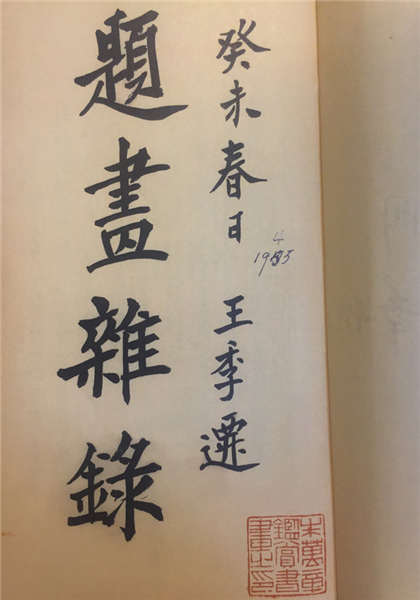 題畫雜錄
癸未春日 王季遷
1943
朱萬章
鑑賞書
畫之印